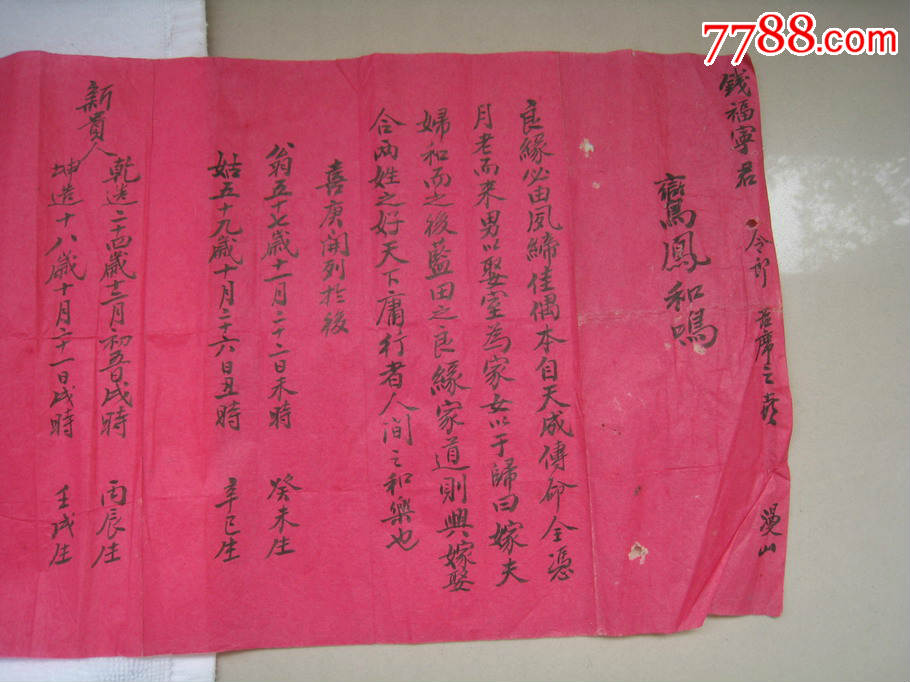 7788.com
钱福寧君 令郎 之喜
鸞鳳和鳴
良緣必由夙締佳偶本自天成傳命全憑
月老而来男以娶室為家女以于歸曰嫁夫
婦和而之後藍田之良緣家道則興嫁娶
合两姓之好天下庸行者人间之和樂也
喜庚開列於後
翁五十七歲十一月二十二日未時 癸未生
姑五十九歲十月二十六日丑時 辛巳生
新貴人
乾造二十四歲十二月初五日戌時 丙辰生
坤造十八歲十月二十一日戌時 壬戌生